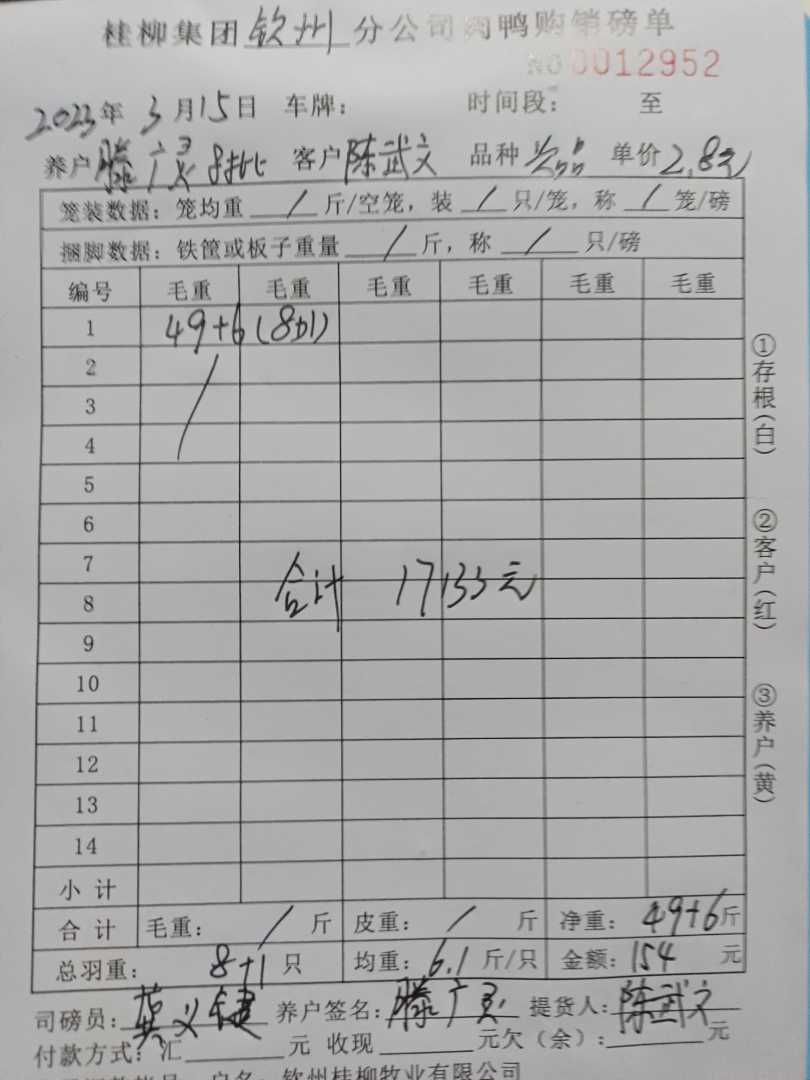 桂柳集团钦州分公司肉鸭购销磅单
NO 0012952
2023年 3月15日 车牌： 时间段： 至
养户 滕广灵8批 客户 陈武文 品种 次品 单价 2.8元
笼装数据：笼均重 / 斤/空笼，装 / 只/笼，称 / 笼/磅
捆脚数据：铁筐或板子重量 / 斤，称 / 只/磅
编号 毛重 毛重 毛重 毛重 毛重 毛重
1 49+6(8加1)
2 /
3
4
5
6
7
合计 17133元
8
9
10
11
12
13
14
小计
合计 毛重： / 斤 皮重： / 斤 净重： 49+6斤
总羽重： 8+1只 均重：6.1斤/只 金额：154元
司磅员： 养户签名：滕广灵 提货人：陈武文
付款方式：汇 元 收现 元欠（余）： 元
户名：钦州桂柳牧业有限公司
①存根（白）
②客户（红）
③养户（黄）